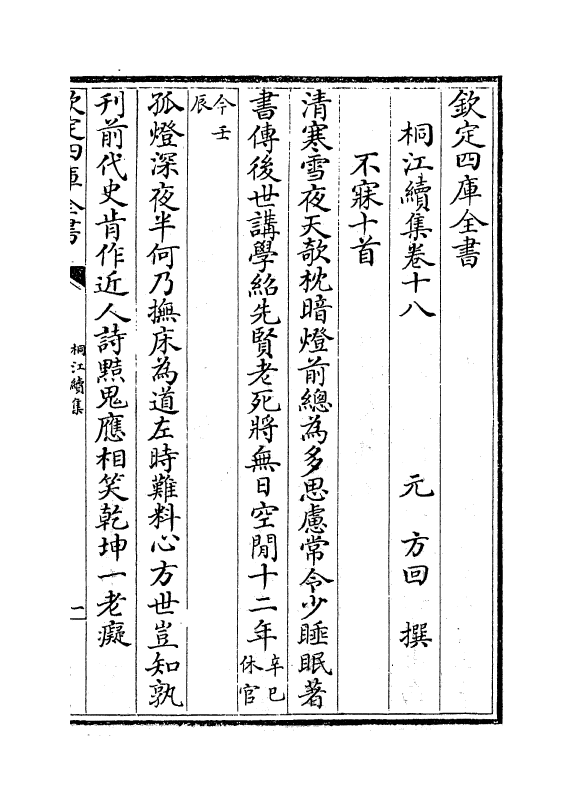 欽定四庫全書
桐江續集卷十八
元 方回 撰
不寐十首
清寒雪夜天欹枕暗燈前總為多思慮常令少睡眠著
書傳後世講學紹先賢老死將無日空閒十二年辛巳休官
今壬辰
孤燈深夜半何乃撫床為道左時難料心方世豈知孰
刋前代史肯作近人詩黠鬼應相笑乾坤一老癡
欽定四庫全書
桐江續集
一